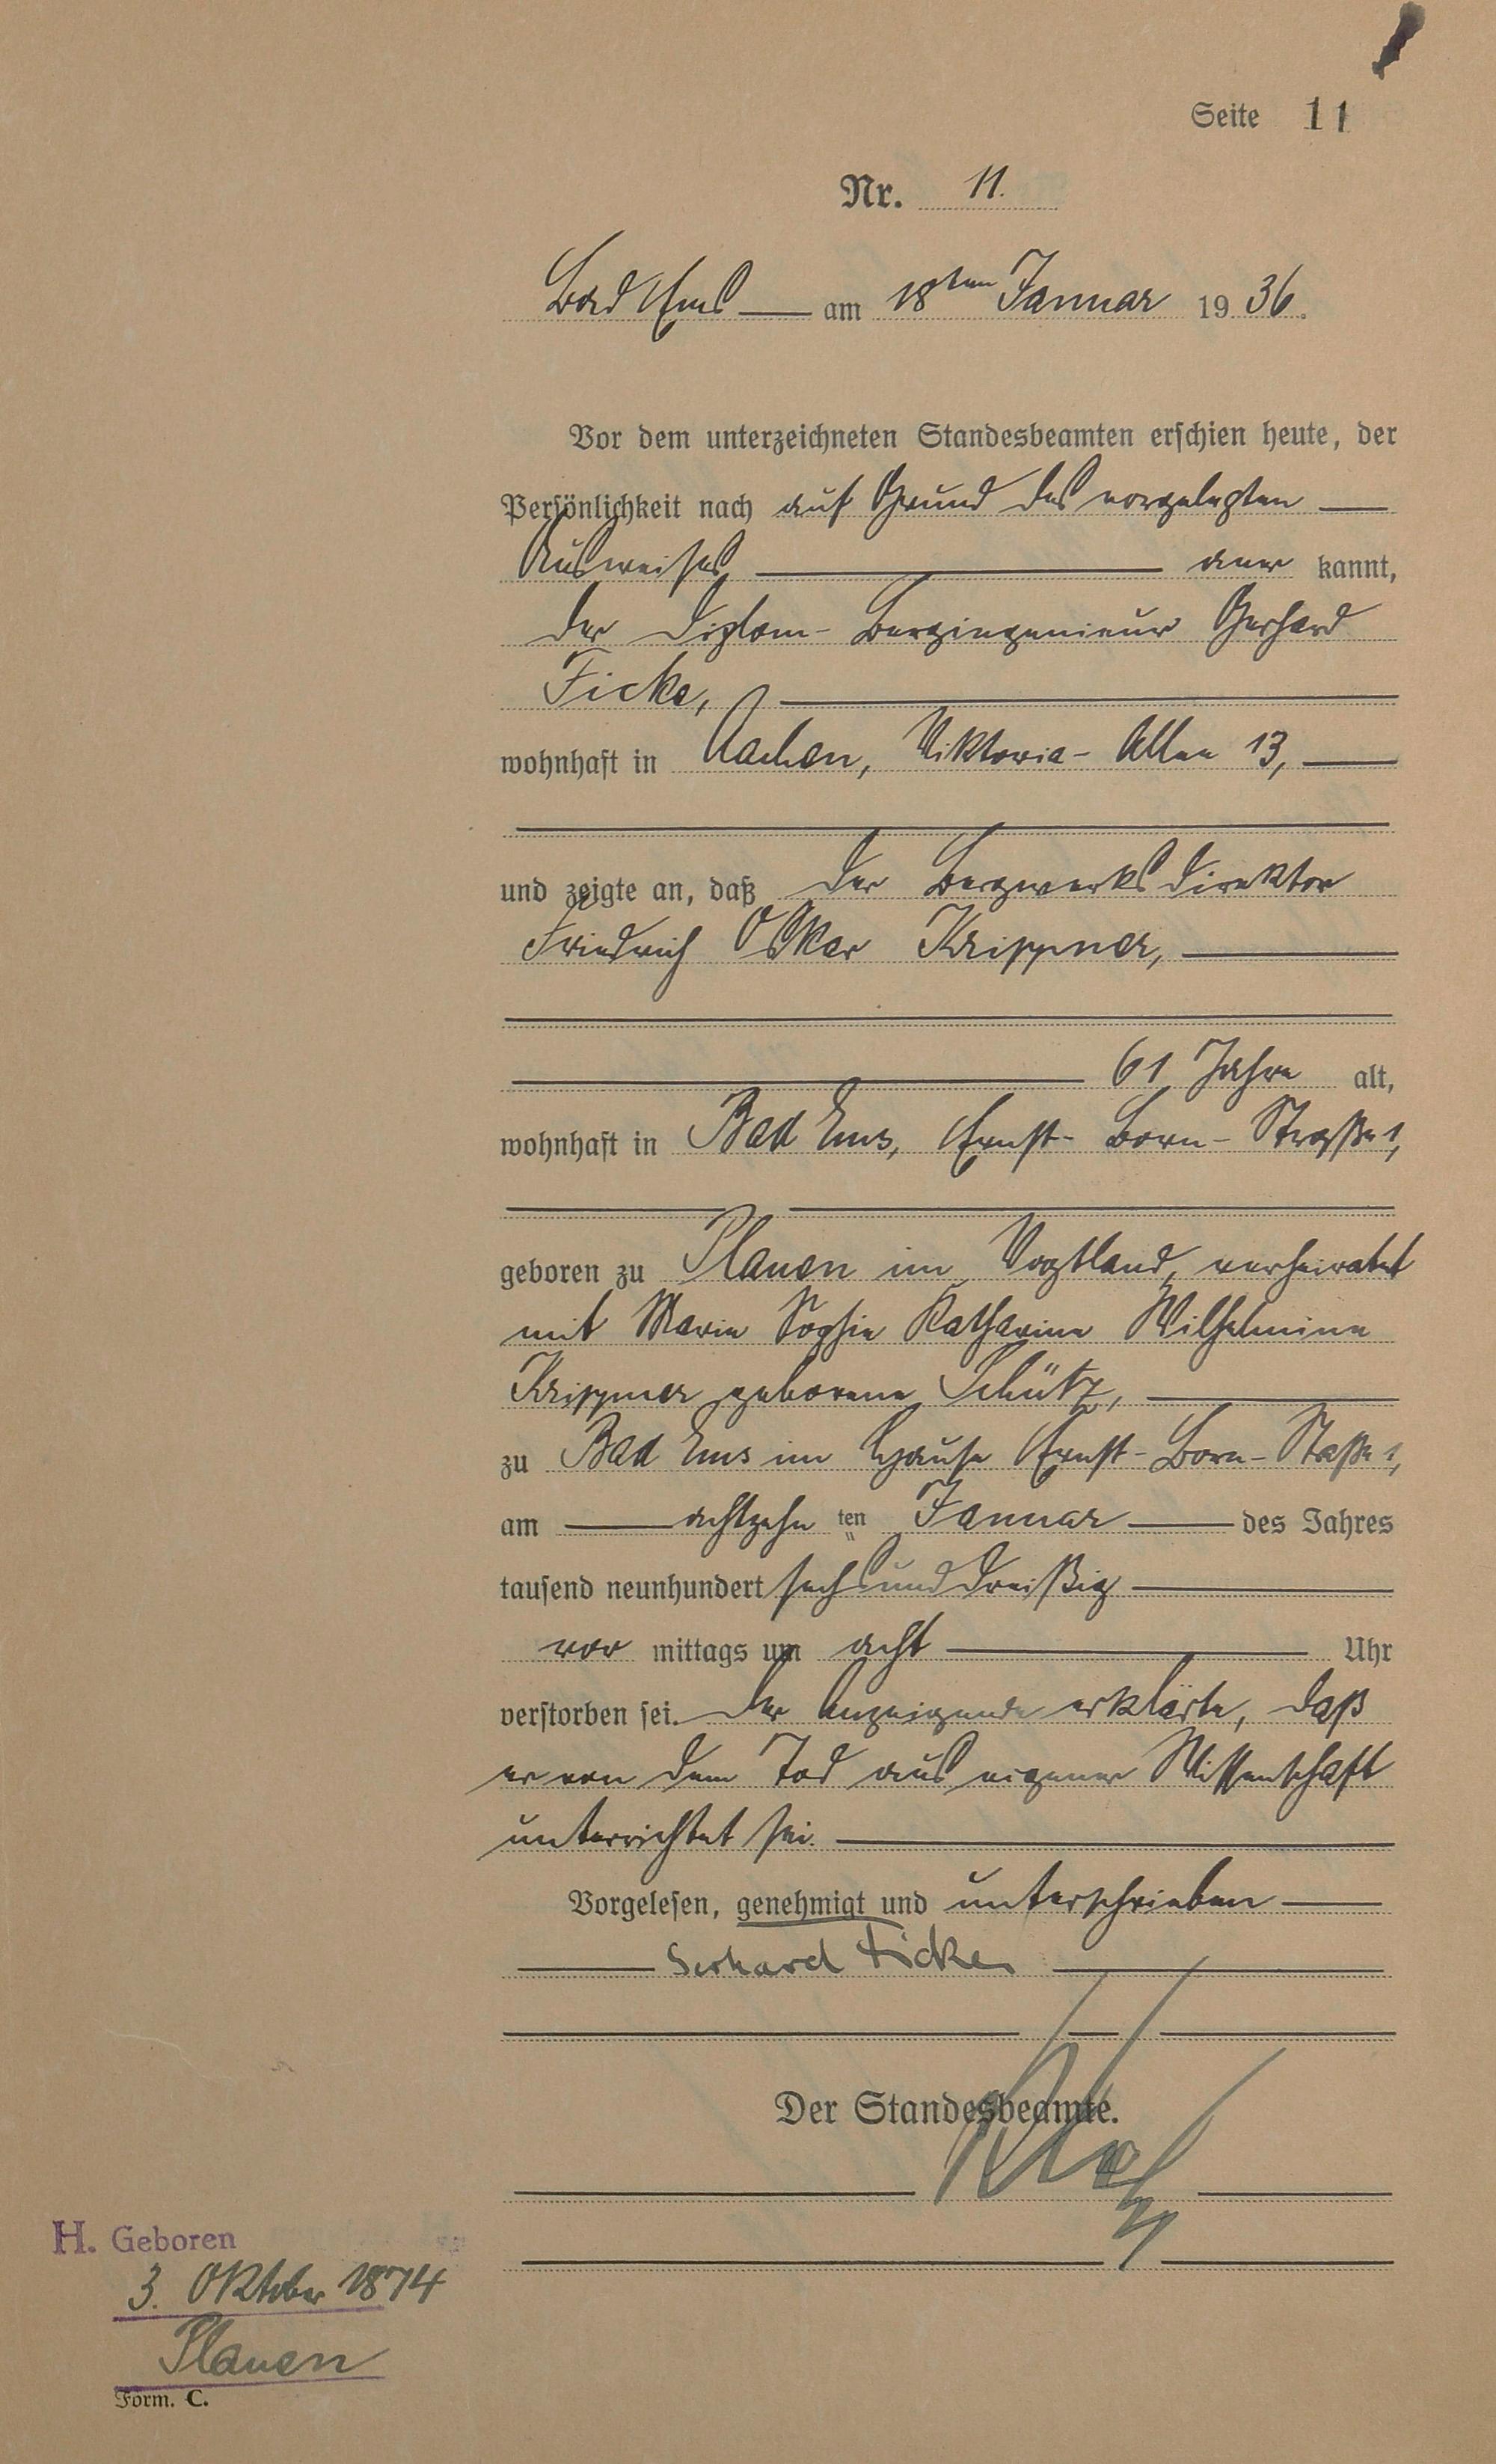 Seite 11
Nr. 11.
Bad Ems am 18ten Januar 1936.
Vor dem unterzeichneten Standesbeamten erschien heute, der
Persönlichkeit nach auf Grund des vorgelegten
Ausweises aner kannt,
der Diplom-Bergingenieur Gerhard
Ficke,
wohnhaft in Aachen, Viktoria-Allee 13,
und zeigte an, daß der Bergwerksdirektor
Friedrich Oskar Krippner,
61 Jahre alt,
wohnhaft in Bad Ems, Ernst-Born-Straße 1,
geboren zu Plauen im Vogtland, verheiratet
mit Marie Sophie Katharine Wilhelmine
Krippner geborene Schütz,
zu Bad Ems im Hause Ernst-Born-Staße 1,
am achtzehn ten Januar des Jahres
tausend neunhundert sechsunddreißig
vor mittags um acht Uhr
verstorben sei. Der Anzeigende erklärte, daß
er von dem Tod aus eigener Wissenschaft
unterrichtet sei.
Vorgelesen, genehmigt und unterschrieben
Gerhard Ficke
Der Standesbeamte.
H. Geboren
3. Oktober 1874
Plauen
Form. C.